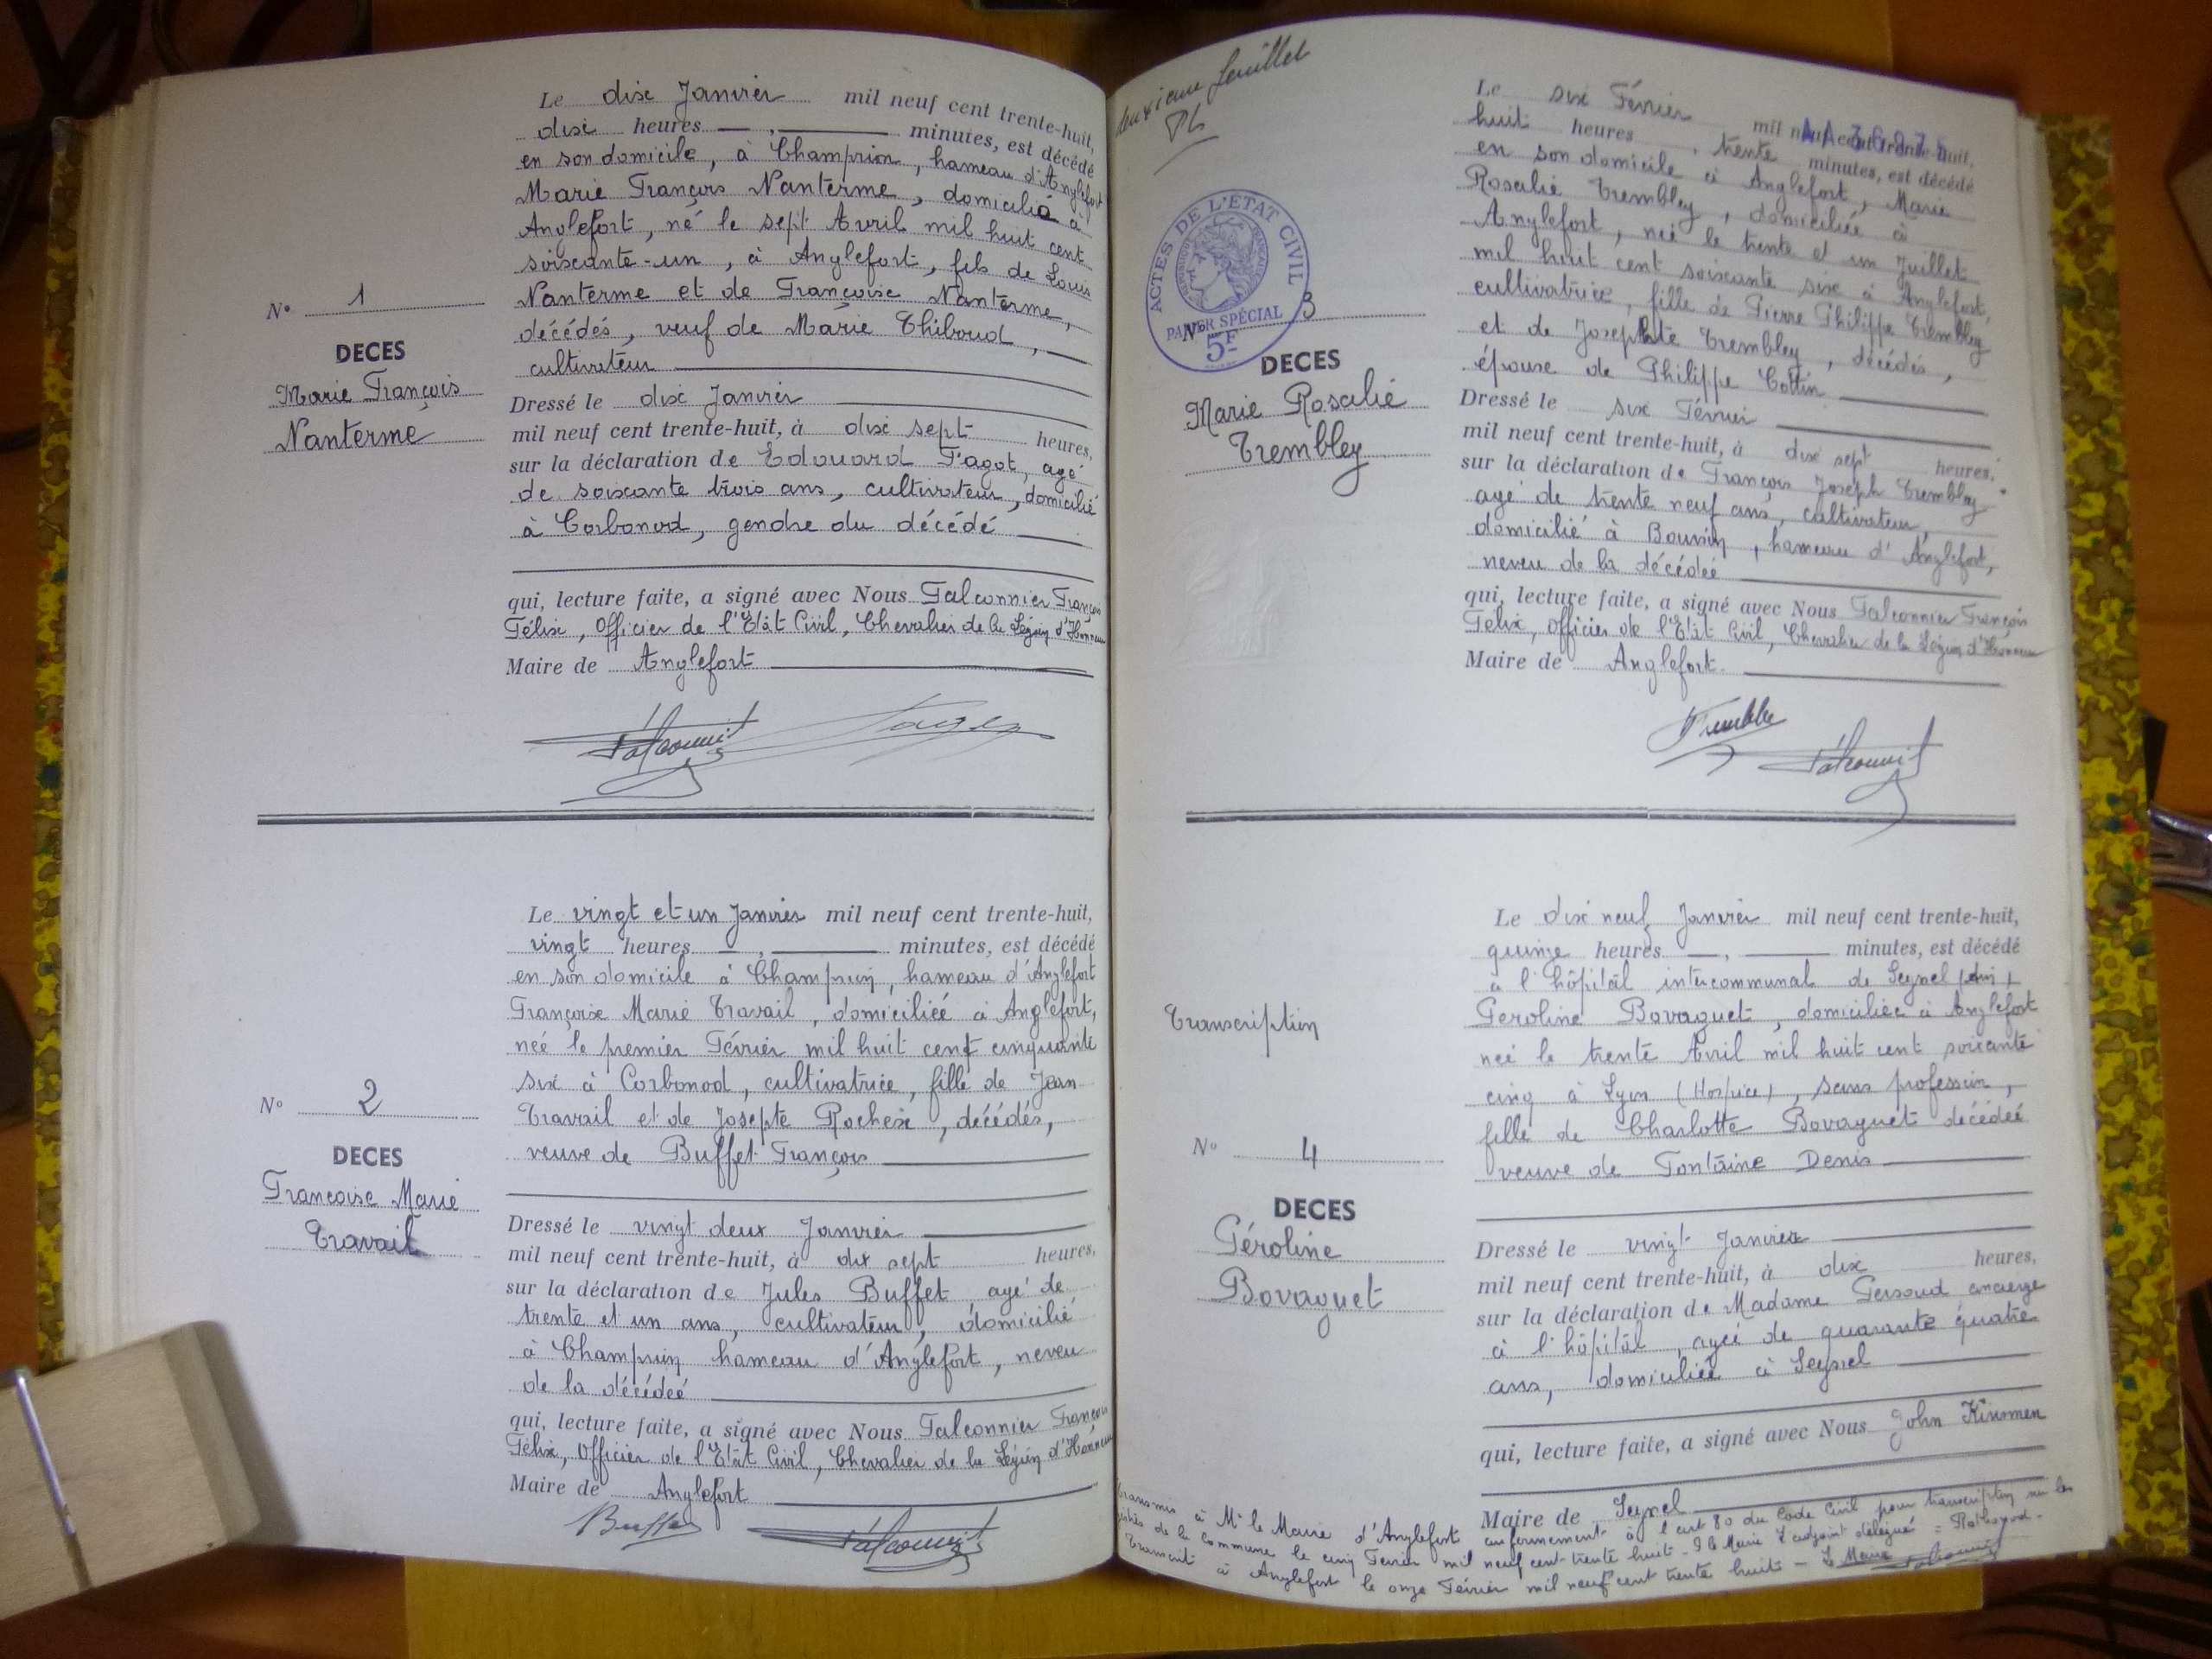 Le dix Janvier mil neuf cent trente-huit,
dix heures — , — minutes, est décédé
en son domicile, à Champrion, hameau d'Anglefort
Marie François Nanterme, domicilié à
Anglefort, né le sept Avril mil huit cent
soixante-un, à Anglefort, fils de Louis
Nanterme et de Françoise Nanterme,
décédés, veuf de Marie Thiboud,
cultivateur
N° 1
DECES
Marie François
Nanterme
Dressé le dix Janvier
mil neuf cent trente-huit, à dix sept heures,
sur la déclaration de Edouard Fagot, agé
de soixante trois ans, cultivateur, domicilié
à Corbonod, gendre du décédé
qui, lecture faite, a signé avec Nous Falconnier François
Félix, Officier de l'Etât Civil, Chevalier de la Légion d'Honneur
Maire de Anglefort
Le vingt et un Janvier mil neuf cent trente-huit,
vingt heures — , — minutes, est décédé
en son domicile à Champrion, hameau d'Anglefort
Françoise Marie Travail, domiciliée à Anglefort,
née le premier Février mil huit cent cinquante
six à Corbonod, cultivatrice, fille de Jean
Travail et de Josepte Rochex, décédés,
veuve de Buffet François
N° 2
DECES
Françoise Marie
Travail
Dressé le vingt deux Janvier
mil neuf cent trente-huit, à dix sept heures,
sur la déclaration de Jules Buffet agé de
trente et un ans, cultivateur, domicilié
à Champrion hameau d'Anglefort, neveu
de la décédée
qui, lecture faite, a signé avec Nous Falconnier François
Félix, Officier de l'Etât Civil, Chevalier de la Légion d'Honneur
Maire de Anglefort
Buffet
deuxième feuillet
Le six Février mil neuf cent trente-huit,
huit heures , trente minutes, est décédé
en son domicile à Anglefort, Marie
Rosalie Trembley, domiciliée à
Anglefort, née le trente et un Juillet
mil huit cent soixante six à Anglefort,
cultivatrice, fille de Pierre Philippe Trembley
et de Josephte Trembley, décédés,
épouse de Philippe Cottin
ACTES DE L'ETAT CIVIL
PAPIER SPÉCIAL
5F
N° 3
DECES
Marie Rosalie
Trembley
Dressé le six Février
mil neuf cent trente-huit, à dix sept heures,
sur la déclaration de François Joseph Trembley
agé de trente neuf ans, cultivateur,
domicilié à Bouvin, hameau d'Anglefort,
neveu de la décédée
qui, lecture faite, a signé avec Nous Falconnier François
Félix, Officier de l'Etât Civil, Chevalier de la Légion d'Honneur
Maire de Anglefort.
Le dix neuf Janvier mil neuf cent trente-huit,
quinze heures — , — minutes, est décédé
à l'hôpitâl intercommunal de Seyssel (Ain)
Géroline Bovaguet, domiciliée à Anglefort
née le trente Avril mil huit cent soixante
cinq à Lyon (Hospice), sans profession,
fille de Charlotte Bovaguet décédée
veuve de Fontaine Denis
Transcription
N° 4
DECES
Géroline
Bovaguet
Dressé le vingt Janvier
mil neuf cent trente-huit, à dix heures,
sur la déclaration de Madame Persoud concierge
à l'hôpitâl, agée de quarante quatre
ans, domiciliée à Seyssel
qui, lecture faite, a signé avec Nous John Kinsmen
Maire de Seyssel
Transmis à Mr le Maire d'Anglefort conformément à l'art 80 du Code Civil pour transcription sur les
registres de la Commune le cinq Février mil neuf cent trente huit - P le Maire l'adjoint délégué =
Transcrit à Anglefort le onze Février mil neuf cent trente huit - Le Maire